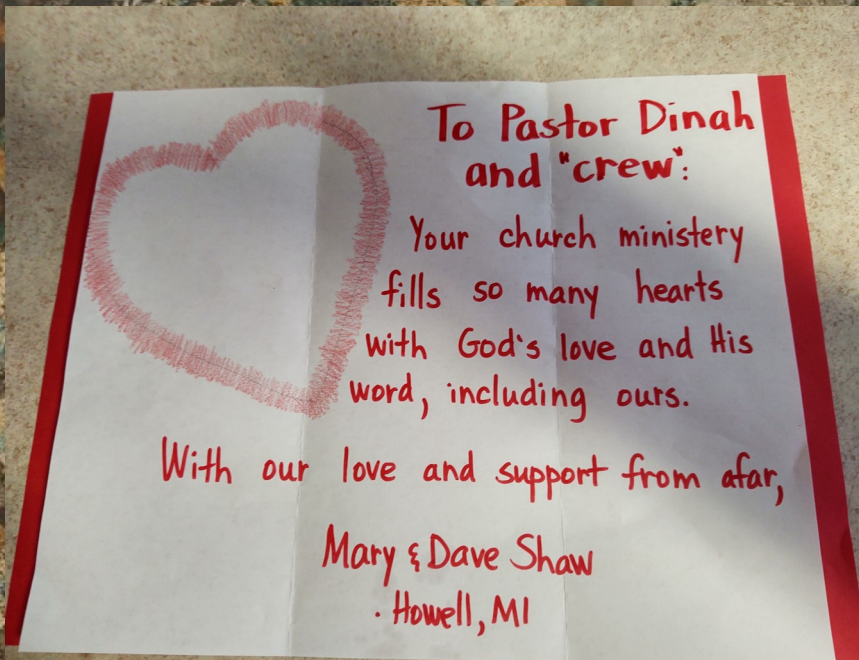 To Pastor Dinah
and "crew":
Your church ministery
fills so many hearts
with God's love and His
word, including ours.
With our love and support from afar,
Mary & Dave Shaw
· Howell, MI